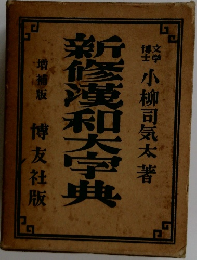 文学博士 小柳司気太著
新修漢和大字典
増補版 博友社版